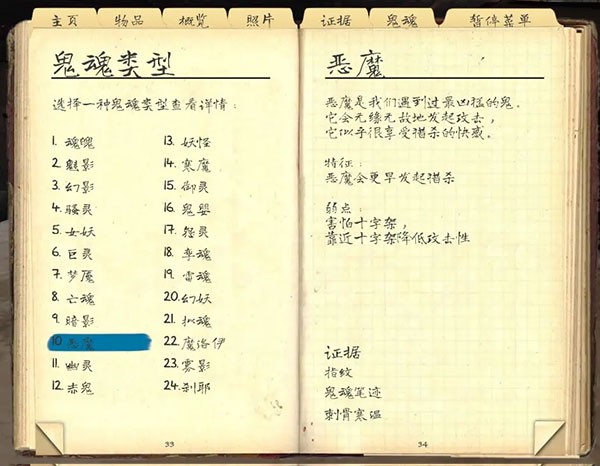 主页 物品 概览 照片 证据 鬼魂 暂停菜单
鬼魂类型
选择一种鬼魂类型查看详情:
1. 魂魄
2. 魅影
3. 幻影
4. 骚灵
5. 女妖
6. 巨灵
7. 梦魇
8. 亡魂
9. 暗影
10. 恶魔
11. 幽灵
12. 赤鬼
13. 妖怪
14. 寒魔
15. 御灵
16. 鬼婴
17. 怨灵
18. 孪魂
19. 雷魂
20. 幻妖
21. 拟魂
22. 魔洛伊
23. 雾影
24. 刹耶
33
恶魔
恶魔是我们遇到过最凶猛的鬼.
它会无缘无故地发起攻击,
它似乎很享受猎杀的快感.
特征:
恶魔会更早发起猎杀
弱点:
害怕十字架,
靠近十字架降低攻击性
证据
指纹
鬼魂笔迹
刺骨寒温
34